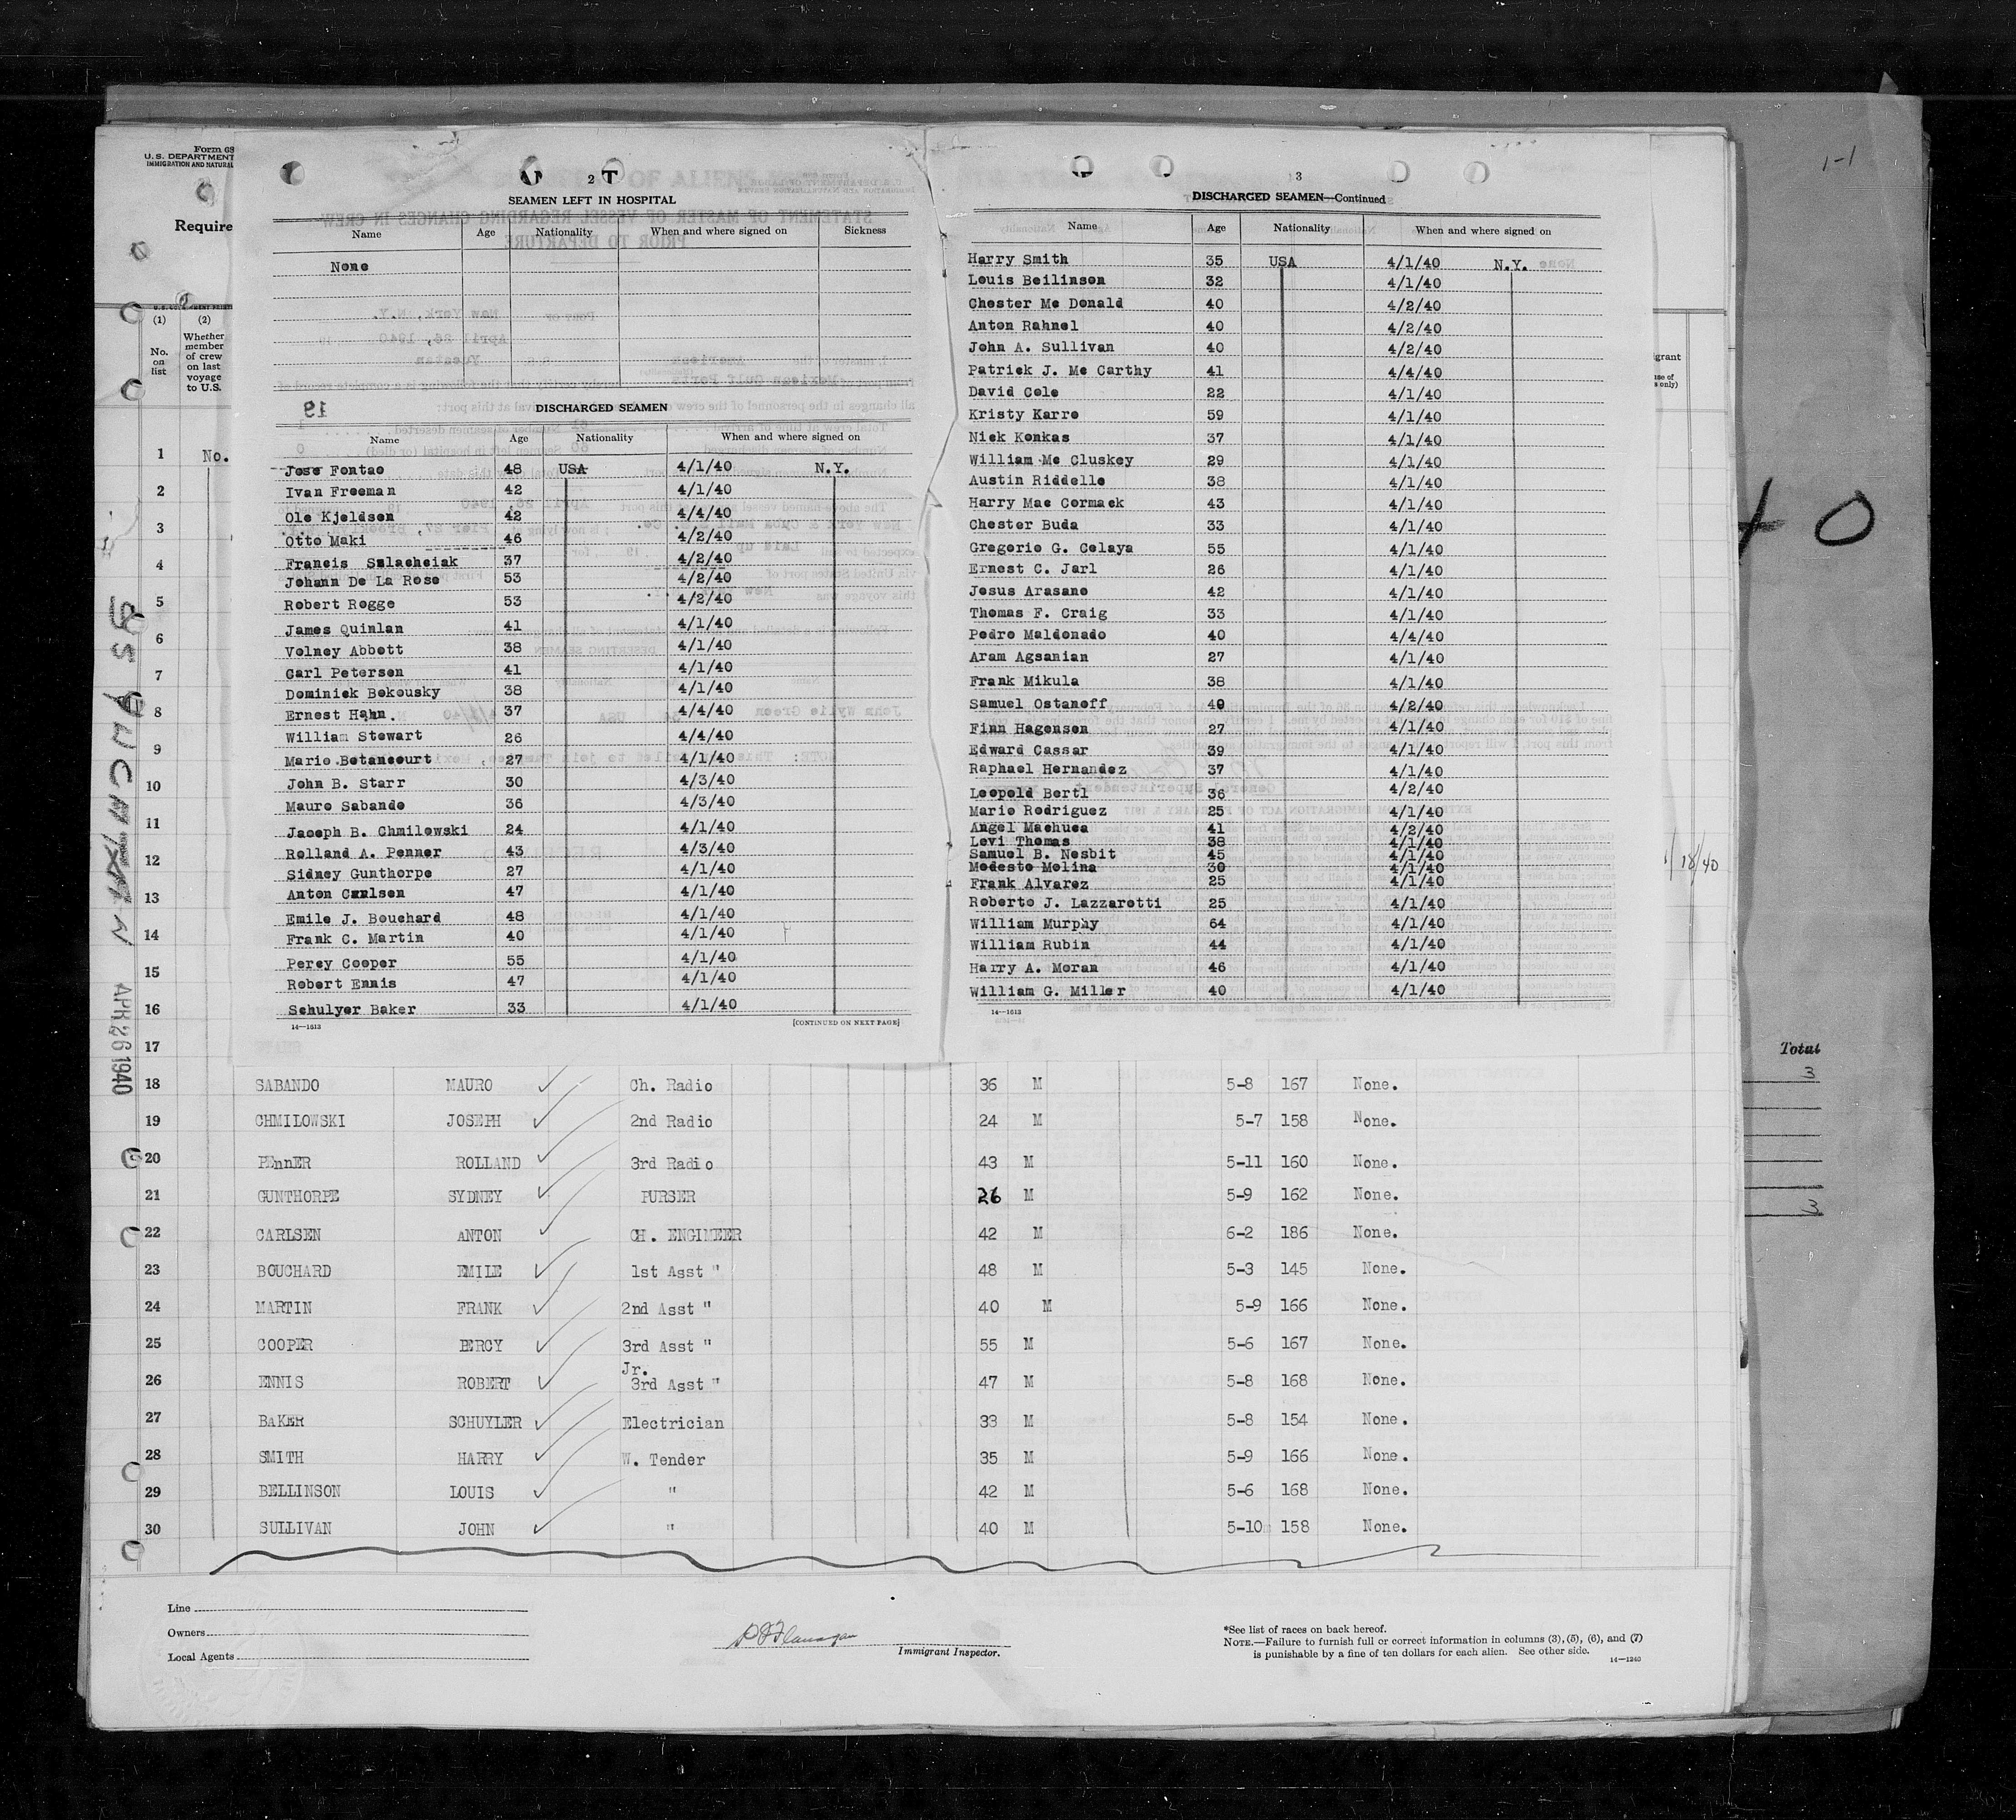 Form 68
U. S. DEPARTMENT
IMMIGRATION AND NATURAL
Require
(1) (2)
No. on list
Whether member of crew on last voyage to U.S.
2
SEAMEN LEFT IN HOSPITAL
Name Age Nationality When and where signed on Sickness
None
DISCHARGED SEAMEN
Name Age Nationality When and where signed on
Jose Fontao 48 USA 4/1/40 N.Y.
Ivan Freeman 42 4/1/40
Ole Kjeldsen 42 4/4/40
Otto Maki 46 4/2/40
Francis Szlacheiak 37 4/2/40
Johann De La Rose 53 4/2/40
Robert Rogge 53 4/2/40
James Quinlan 41 4/1/40
Volney Abbott 38 4/1/40
Carl Petersen 41 4/1/40
Dominick Bokousky 38 4/1/40
Ernest Hahn. 37 4/4/40
William Stewart 26 4/4/40
Mario Betancourt 27 4/1/40
John B. Starr 30 4/3/40
Mauro Sabando 36 4/3/40
Jaoeph B. Chmilowski 24 4/1/40
Rolland A. Penner 43 4/3/40
Sidney Gunthorpe 27 4/1/40
Anton Carlsen 47 4/1/40
Emile J. Bouchard 48 4/1/40
Frank C. Martin 40 4/1/40
Percy Cooper 55 4/1/40
Robert Ennis 47 4/1/40
Schulyer Baker 33 4/1/40
14—1613 [CONTINUED ON NEXT PAGE]
3
DISCHARGED SEAMEN—Continued
Name Age Nationality When and where signed on
Harry Smith 35 USA 4/1/40 N.Y.
Louis Beilinson 32 4/1/40
Chester Mc Donald 40 4/2/40
Anton Rahnel 40 4/2/40
John A. Sullivan 40 4/2/40
Patrick J. Mc Carthy 41 4/4/40
David Cole 22 4/1/40
Kristy Karro 59 4/1/40
Nick Konkas 37 4/1/40
William Mc Cluskey 29 4/1/40
Austin Riddelle 38 4/1/40
Harry Mac Cormack 43 4/1/40
Chester Buda 33 4/1/40
Gregorio G. Celaya 55 4/1/40
Ernest C. Jarl 26 4/1/40
Jesus Arasano 42 4/1/40
Thomas F. Craig 33 4/1/40
Pedro Maldonado 40 4/4/40
Aram Agsanian 27 4/1/40
Frank Mikula 38 4/1/40
Samuel Ostanoff 40 4/2/40
Finn Hagensen 27 4/1/40
Edward Cassar 39 4/1/40
Raphael Hernandez 37 4/1/40
Leopold Bertl 36 4/2/40
Mario Rodriguez 25 4/1/40
Angel Machuca 41 4/2/40
Levi Thomas 38 4/1/40
Samuel B. Nesbit 45 4/1/40
Modesto Molina 30 4/1/40
Frank Alvarez 25 4/1/40
Roberto J. Lazzarotti 25 4/1/40
William Murphy 64 4/1/40
William Rubin 44 4/1/40
Harry A. Moran 46 4/1/40
William G. Miller 40 4/1/40
14—1613
1 No.
2
3
4
5
6
7
8
9
10
11
12
13
14
15
16
17
18 SABANDO MAURO Ch. Radio 36 M 5-8 167 None.
19 CHMILOWSKI JOSEPH 2nd Radio 24 M 5-7 158 None.
20 PEnnER ROLLAND 3rd Radio 43 M 5-11 160 None.
21 GUNTHORPE SYDNEY PURSER 26 M 5-9 162 None.
22 CARLSEN ANTON CH. ENGINEER 42 M 6-2 186 None.
23 BOUCHARD EMILE 1st Asst " 48 M 5-3 145 None.
24 MARTIN FRANK 2nd Asst " 40 M 5-9 166 None.
25 COOPER PERCY 3rd Asst " 55 M 5-6 167 None.
26 ENNIS ROBERT Jr. 3rd Asst " 47 M 5-8 168 None.
27 BAKER SCHUYLER Electrician 33 M 5-8 154 None.
28 SMITH HARRY W. Tender 35 M 5-9 166 None.
29 BELLINSON LOUIS " 42 M 5-6 168 None.
30 SULLIVAN JOHN " 40 M 5-10 158 None.
APR 26 1940
1-1
40
1/18/40
Total
3
3
Line
Owners
Local Agents
Immigrant Inspector.
*See list of races on back hereof.
NOTE.—Failure to furnish full or correct information in columns (3), (5), (6), and (7)
is punishable by a fine of ten dollars for each alien. See other side.
14—1240